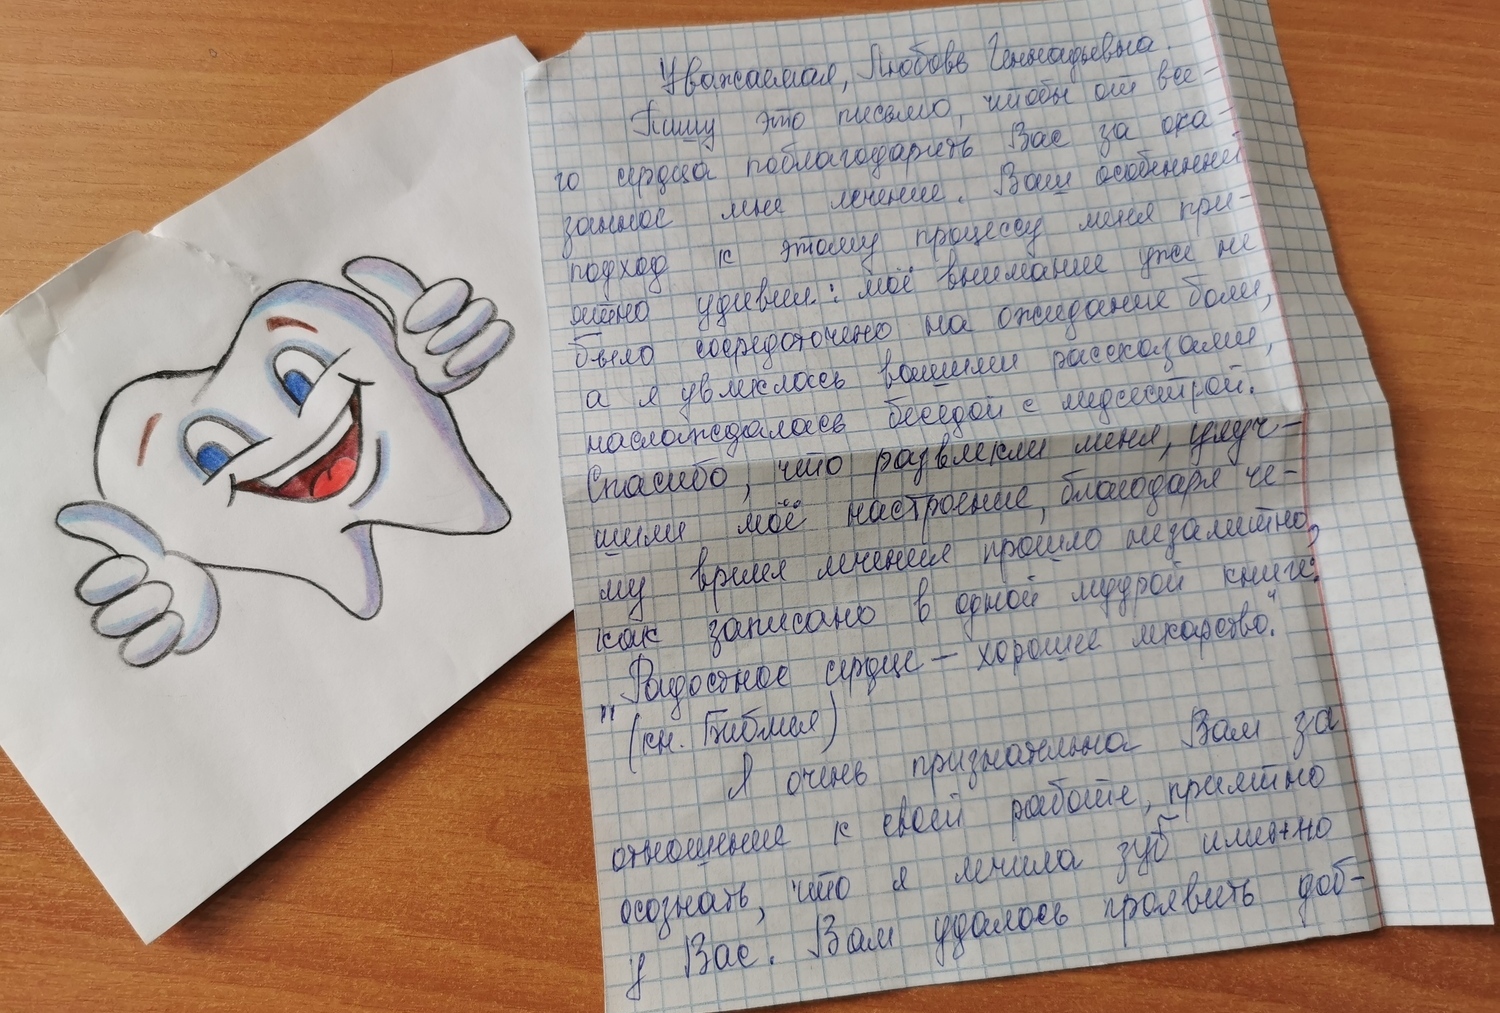 Уважаемая, Любовь Геннадьевна.
Пишу это письмо, чтобы от все-
го сердца поблагодарить Вас за ока-
занное мне лечение. Ваш особенный
подход к этому процессу меня при-
ятно удивил: моё внимание уже не
было сосредоточено на ожидание боли,
а я увлеклась вашими рассказами,
наслаждалась беседой с медсестрой.
Спасибо, что развлекли меня, улуч-
шили моё настроение, благодаря че-
му время лечения прошло незаметно,
как записано в одной мудрой книге:
„Радостное сердце — хорошее лекарство."
(кн. Библия)
Я очень признательна Вам за
отношение к своей работе, приятно
осознать, что я лечила зуб именно
у Вас. Вам удалось проявить доб-